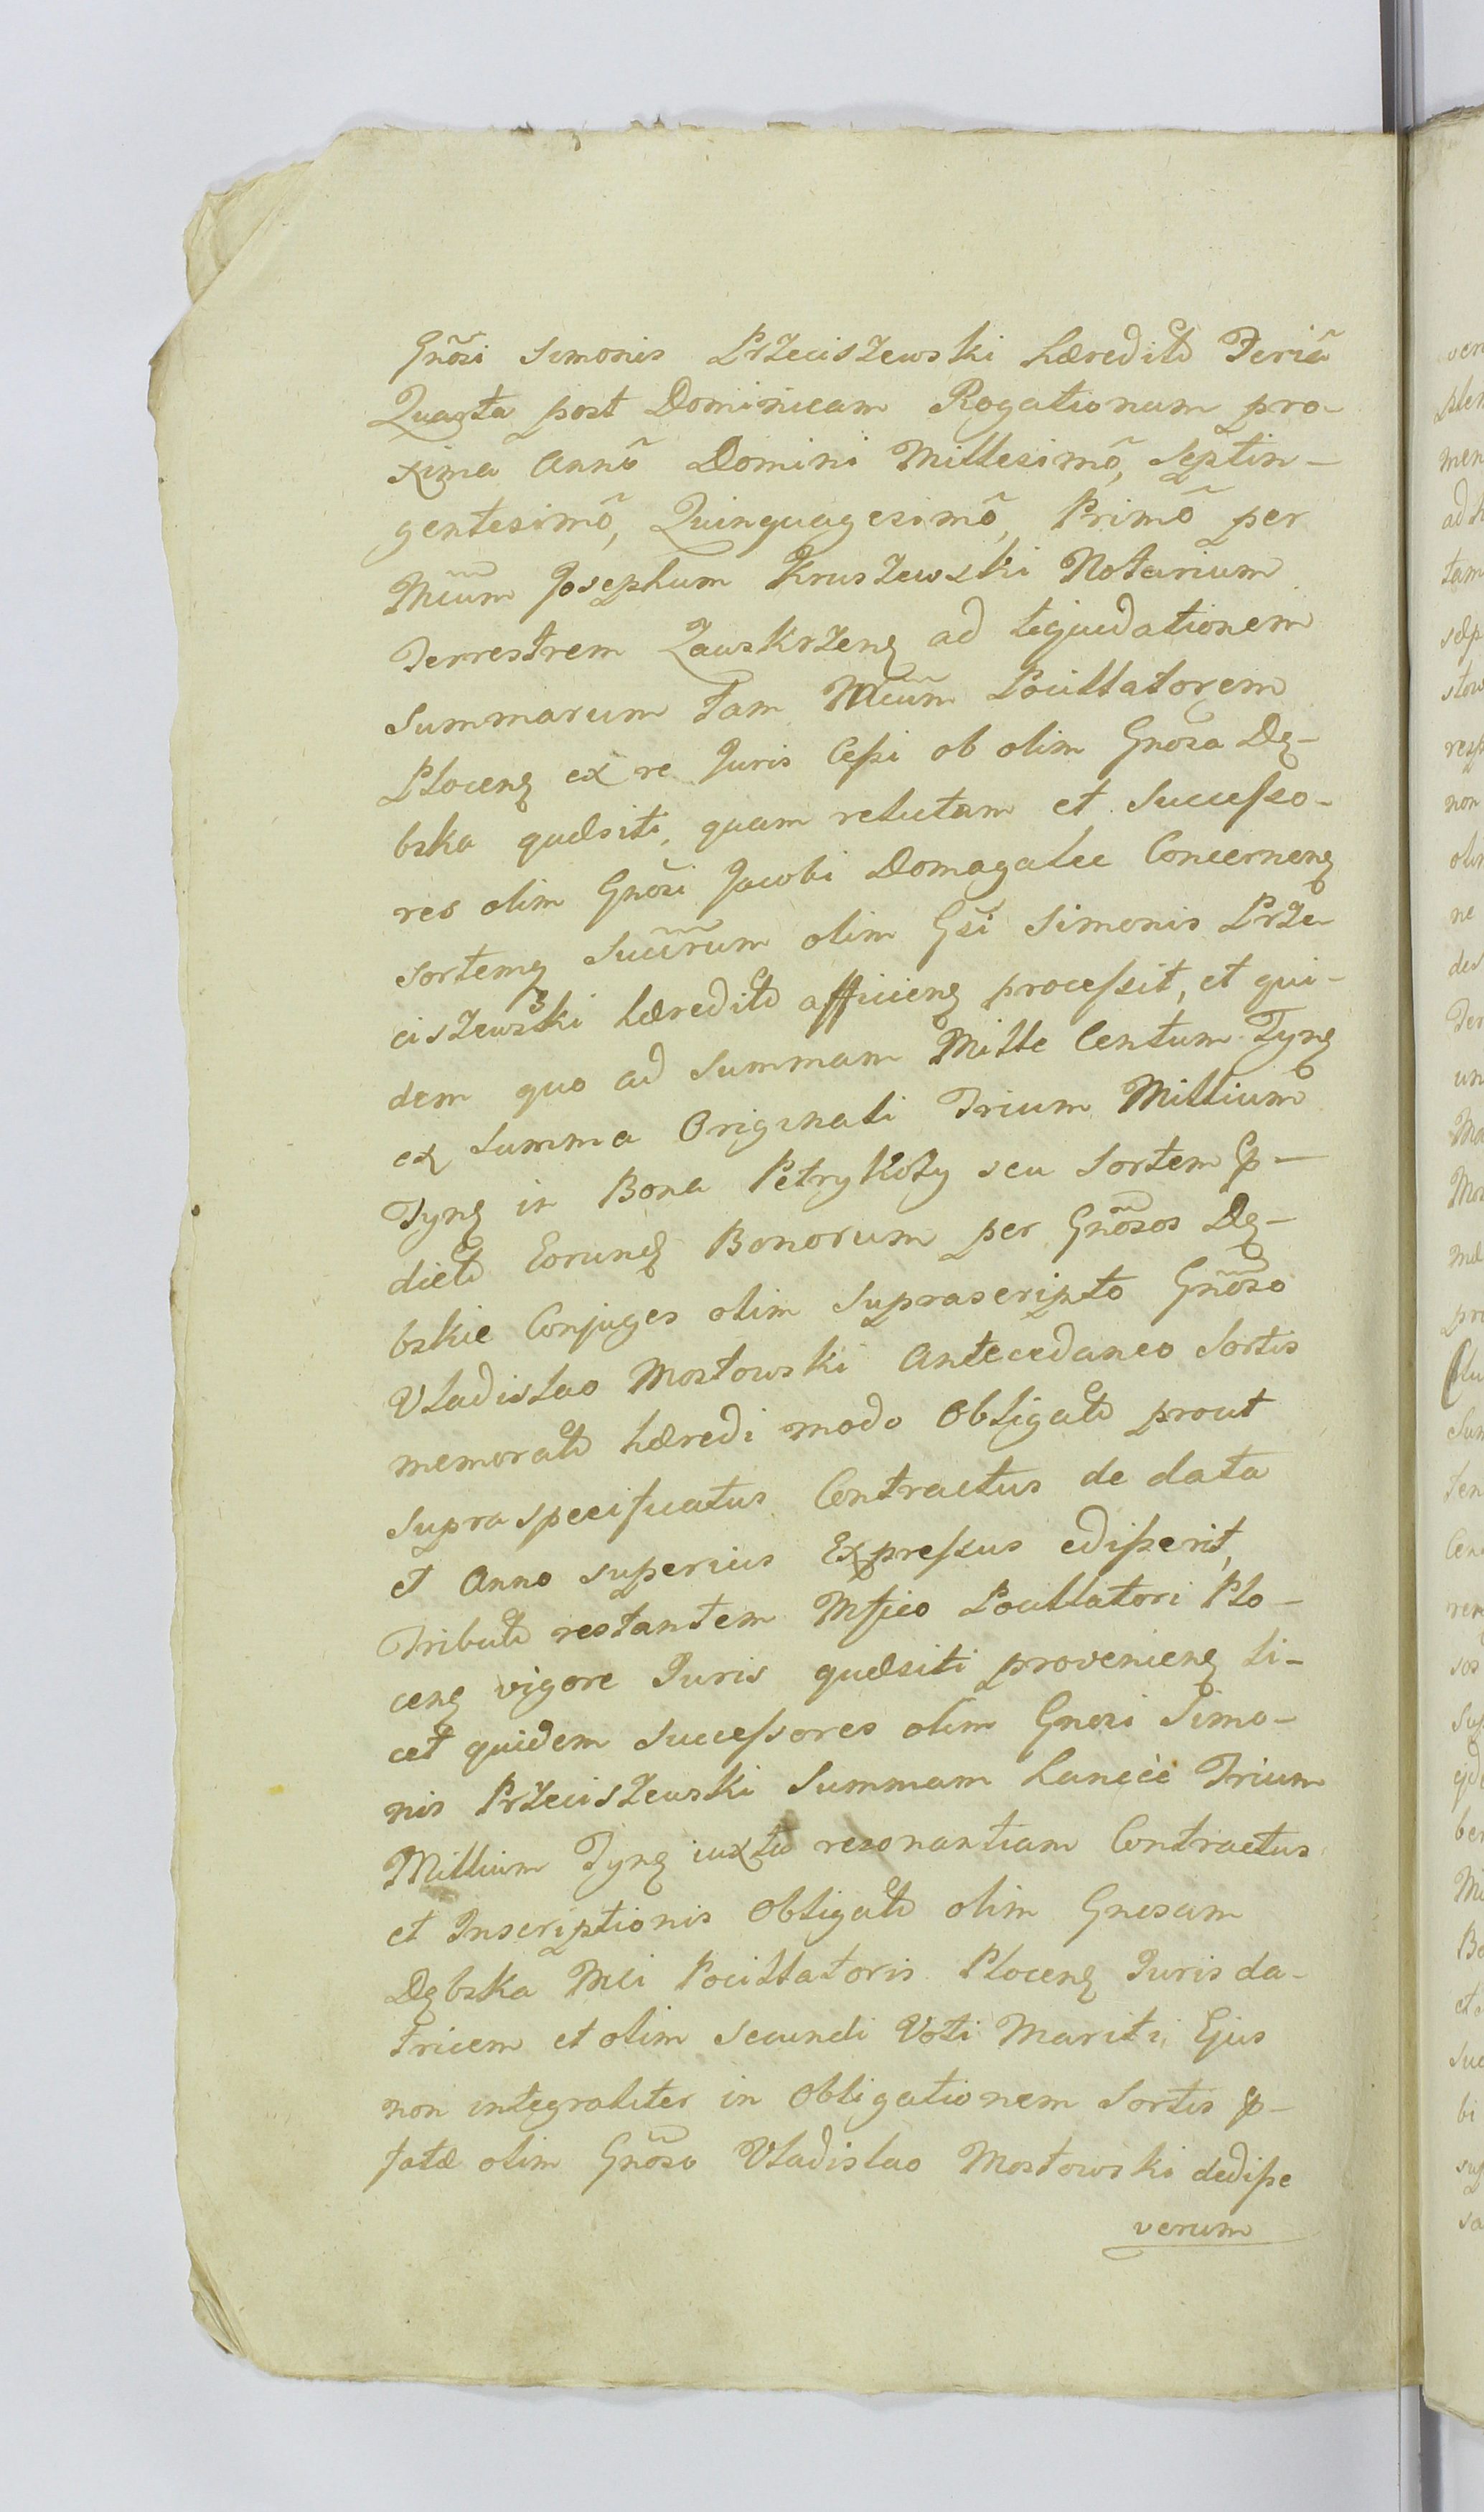 Gnõsi Simonis Przeciszewski hæredit͠t Feriâ
Quarta post Dominicam Rogationum pro-
xima Annô Domini Millesimô, Septin-
gentesimô, Quinquagesimô, Primô per
Mcum Josephum Kruszewski Notarium
Terrestrem Zawskrzenȩ ad liquidationem
Summarum tam Mcum Pocillatorem
Plocenȩ ex re Juris Cessi ob olim Gnosa Dę-
bska quæsiti, quam relictam et Successo-
res olim Gnosi Jacobi Domagalic Concernenȩ
sortemȩ Succrum olim Gsi Simonis Prze
ciszewski hæredit͠t afficienȩ processit, et qui-
dem quo ad Summam Mille Centum Tynȩ
ex Summa Originali Trium Millium
Tynȩ in Bona Petrykozy seu Sortem p-
dict͠t Eorunȩ Bonorum per Gnosos Dę-
bskie Conjuges olim Suprascripto Gnoso
Vladislao Mostowski Antecedaneo Sortis
memorat͠t hæredi modo Obligat͠t prout
supra specificatus Contractus de data
et Anno superius Expressus edisserit,
Tribut͠t restantem Mfico Pocillatori Plo-
cenȩ vigore Juris quæsiti provenienȩ li-
cet quidem Successores olim Gnosi Simo-
nis Przeciszewski Summam hancce Trium
Millium Tynȩ iuxta resonantiam Contractus
et Inscriptionis Obligat͠t olim Gnosam
Dębska Mci Pocillatoris Plocenȩ Juris da-
tricem et olim Secundi Voti Mariti Ejus
non integraliter in Obligationem Sortis p-
fatæ olim Gnoso Vladislao Mostowski dedisse
verum